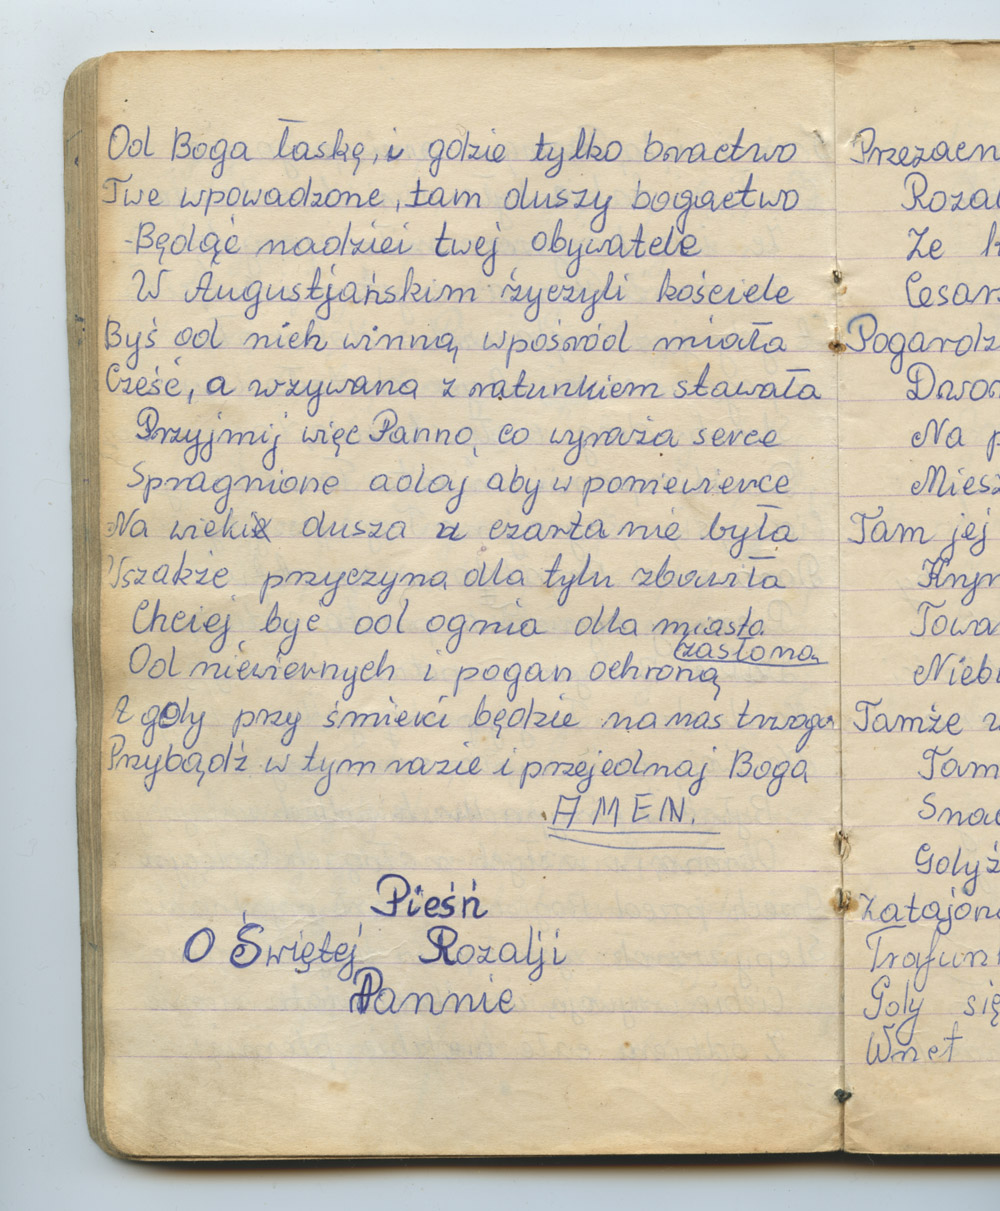 Od Boga łaskę, i gdzie tylko bractwo
Twe wpowadzone, tam duszy bogactwo
Będąć nadziei twej obywatele
W Augustjańskim życzyli kościele
Byś od nich winną wpośród miała
Cześć, a wzywana z ratunkiem stawała
Przyjmij więc Panno, co wyraża serce
Spragnione a daj aby w poniewierce
Na wieki dusza u czarta nie była
Wszakże przyczyna dla tylu zbawiła
Chciej być od ognia dla miasta
zasłoną
Od niewiernych i pogan ochroną
A gdy przy śmierci będzie na nas trwoga
Przybądź w tym razie i przejednaj Boga
AMEN.
Pieśń
O Świętej Rozalji
Pannie
Przezacn
Rozal
Że k
Cesarz
Pogardz
Dwor
Na p
Miesz
Tam jej
Kryn
Towa
Niebi
Tamże w
Tam
Snac
Gdyż
Zatajona
Trafun
Gdy się
Wnet